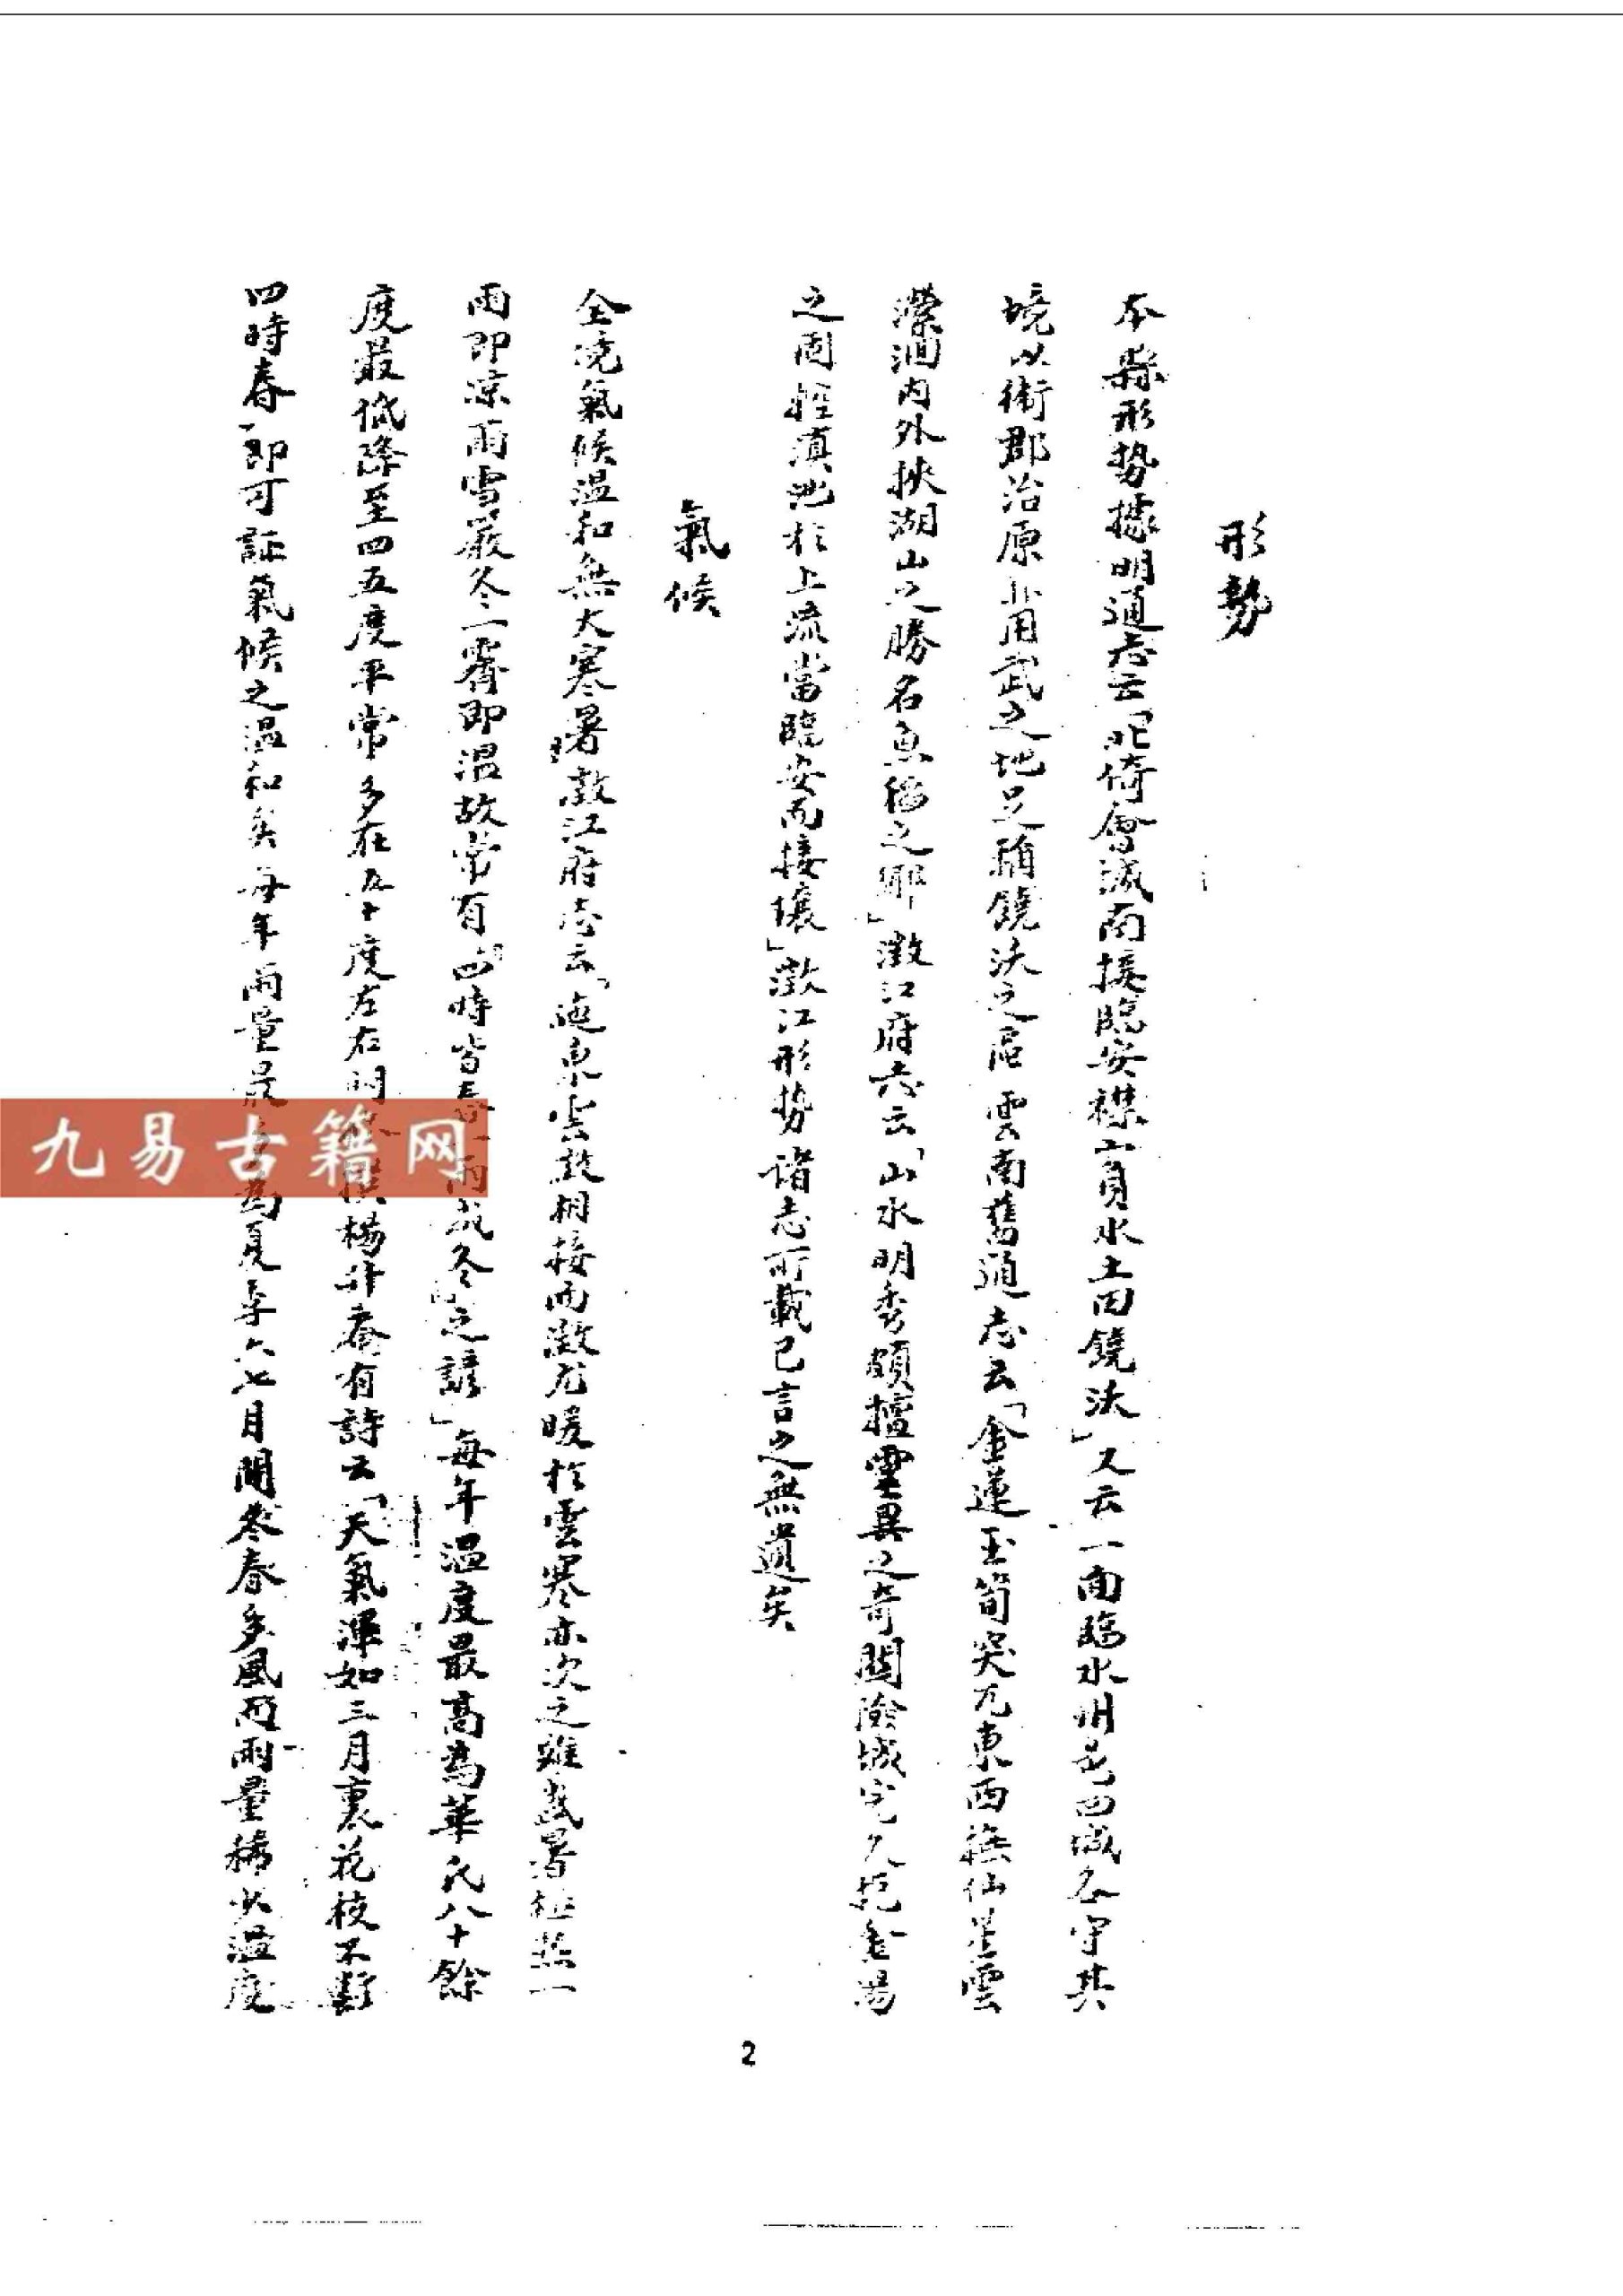 形勢
本縣形势據明通志云「北倚會城南接臨安襟山負水土田饒沃」又云一面臨水州邑四城各守其
境以衛郡治原非用武之地足稱饒沃之區雲南舊通志云「金蓮玉筍突兀東西撫仙星雲
瀠洄内外挾湖山之勝名魚稻之鄉」澂江府志云「山水明秀頗擅靈異之奇關險城完人抱金湯
之固控滇池於上流當臨安而接壤」澂江形势諸志所載已言之無遺矣
氣候
全境氣候温和無大寒暑澂江府志云「迤東雲澂相接而澂尤暖於雲寒亦次之雖盛暑一
雨即凉雨雪嚴冬一霽即温故常有四時皆春一雨成冬之諺」每年温度最高為華氏八十餘
度最低降至四五度平常多在五十度左右明楊升菴有詩云「天氣渾如三月裏花枝不斷
四時春」即可証氣候之温和矣每年雨量最多為夏季六七月間冬春多風而雨量稀少温度
2
九易古籍网